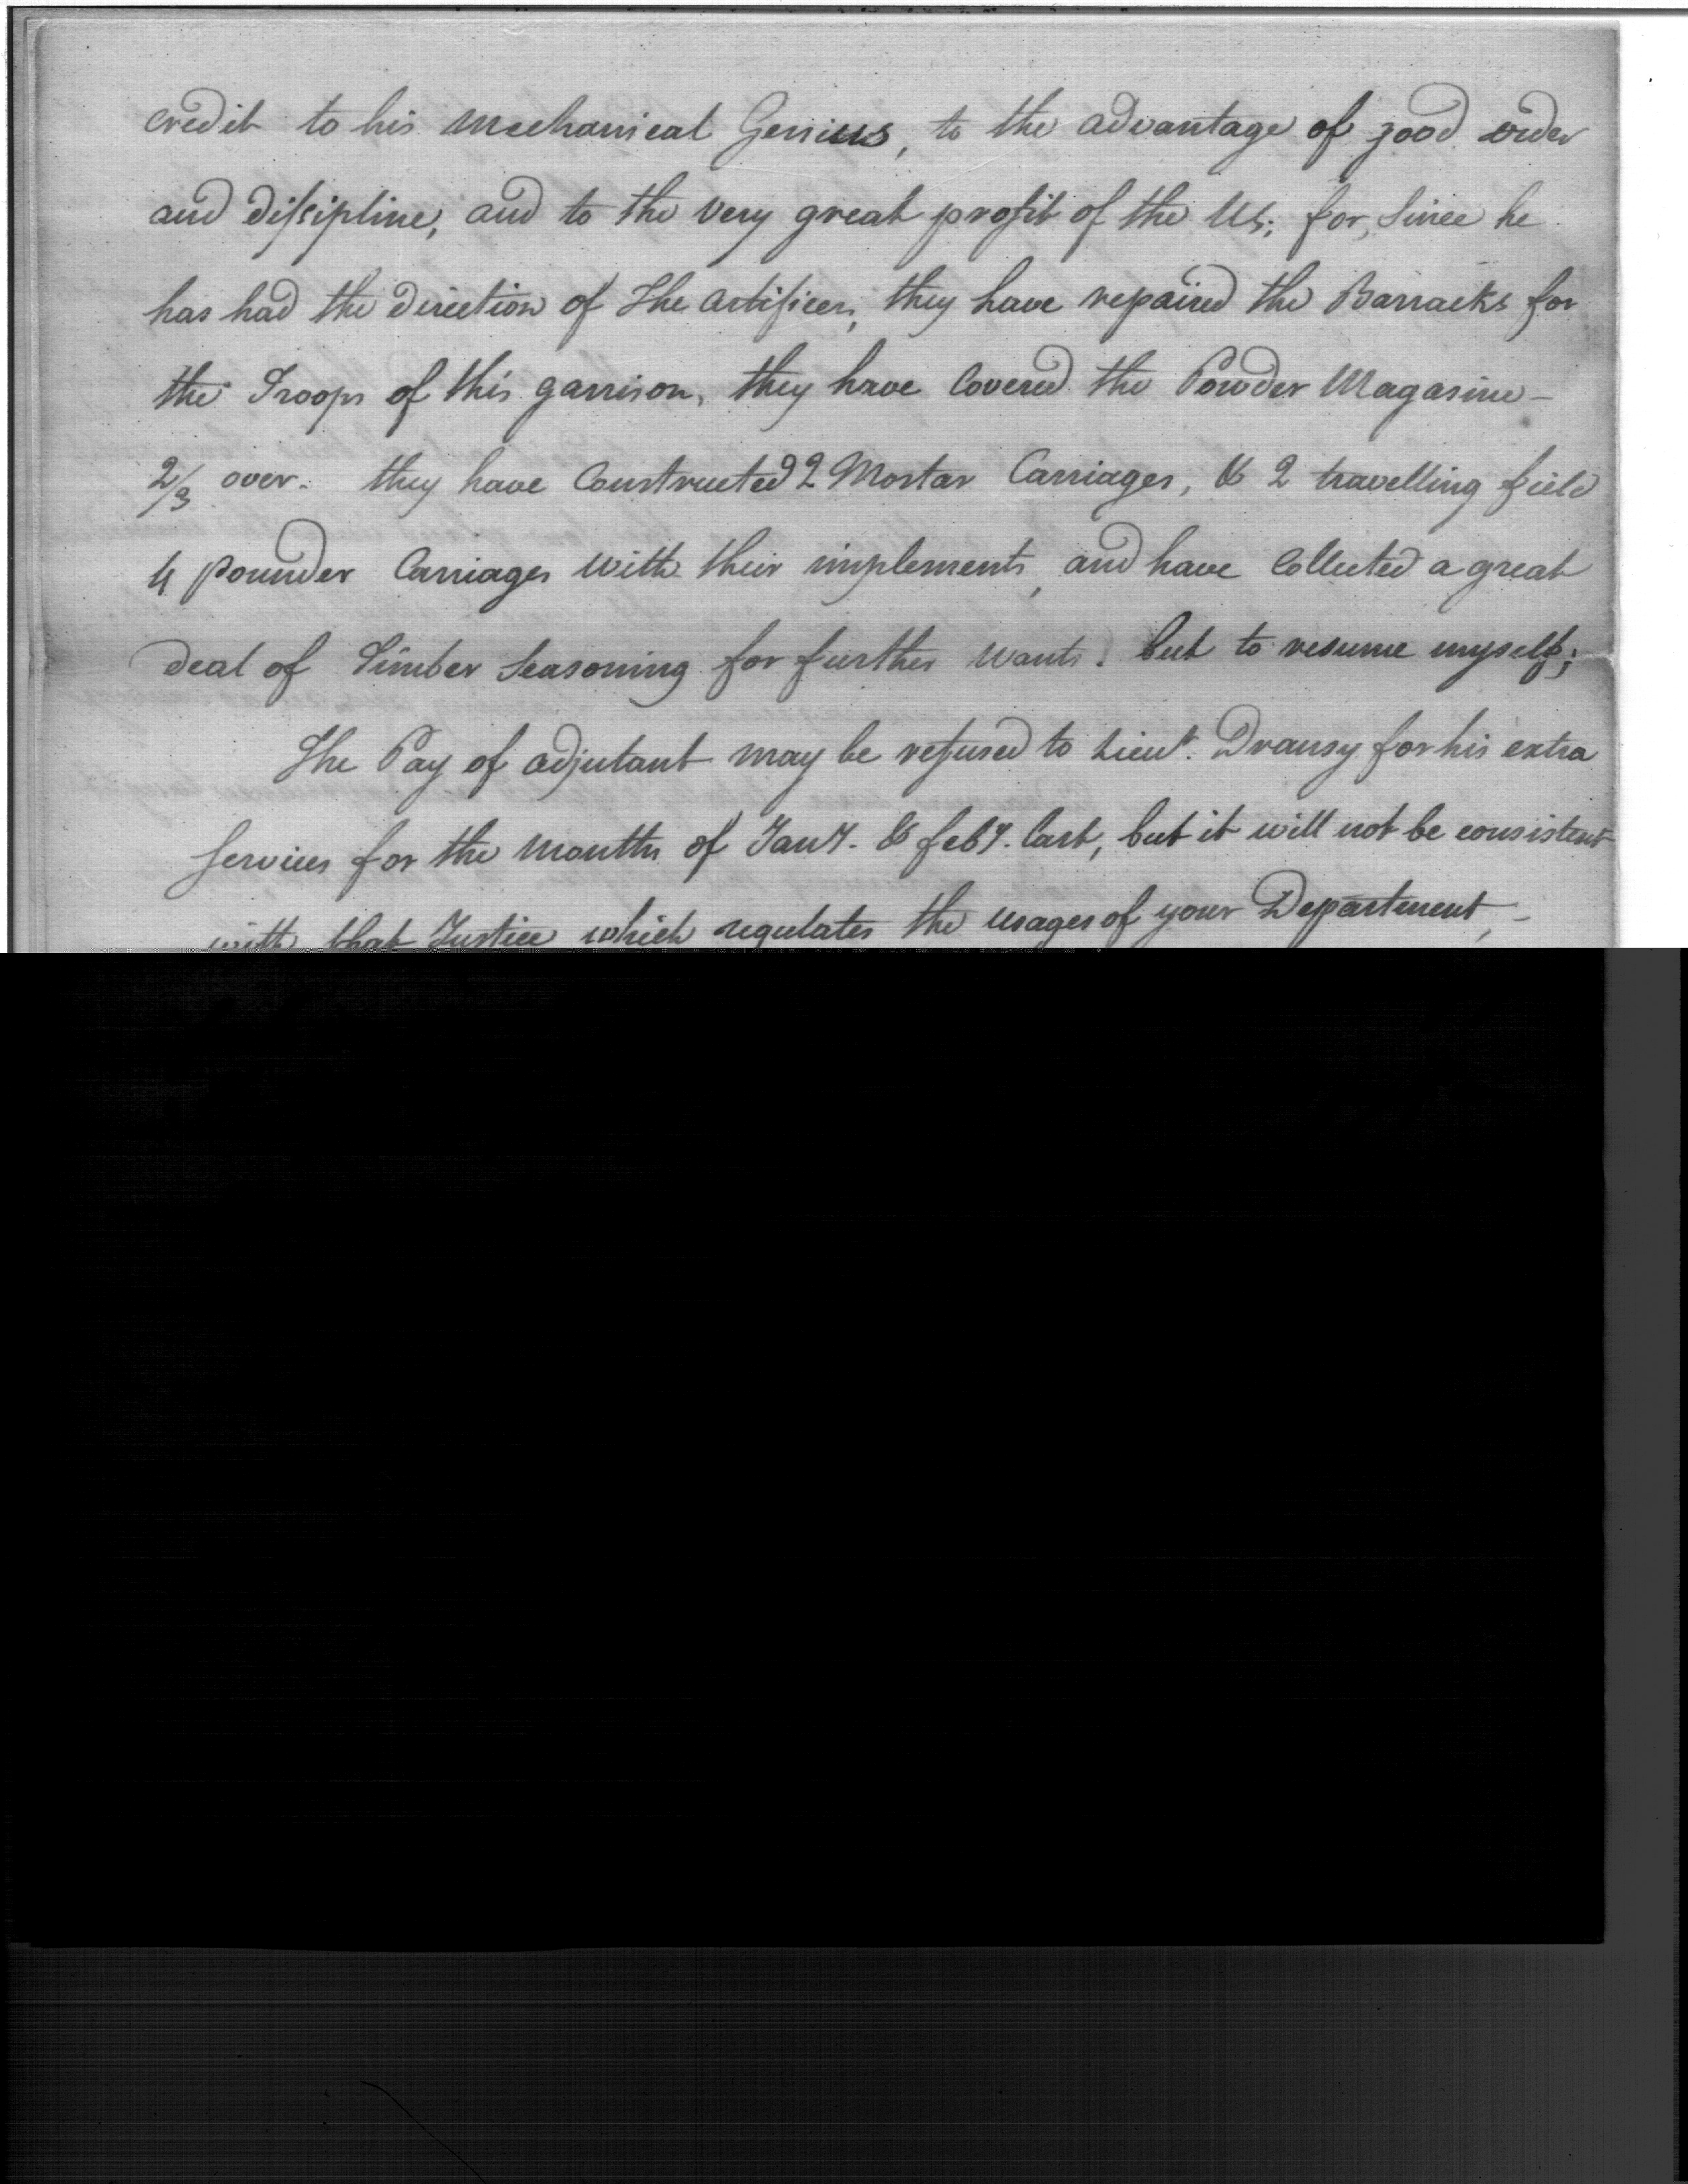 credit to his mechanical Genius, to the advantage of good order
and dissipline, and to the very great profit of the US; for, Since he
has had the direction of The artificers, they have repaired the Barracks for
the Troops of this garrison, they have Covered the Powder Magasine -
2/3 over. they have Constructed 2 Mortar Carriages, & 2 travelling field
4 pounder Carriages with their implements, and have Collected a great
deal of Timber Seasoning for further wants. but to resume myself;
The Pay of adjutant may be refused to Lieut. Dransy for his extra
Services for the months of Jany. & feby. last, but it will not be consistent
with that Justice which regulates the usages of your Department,